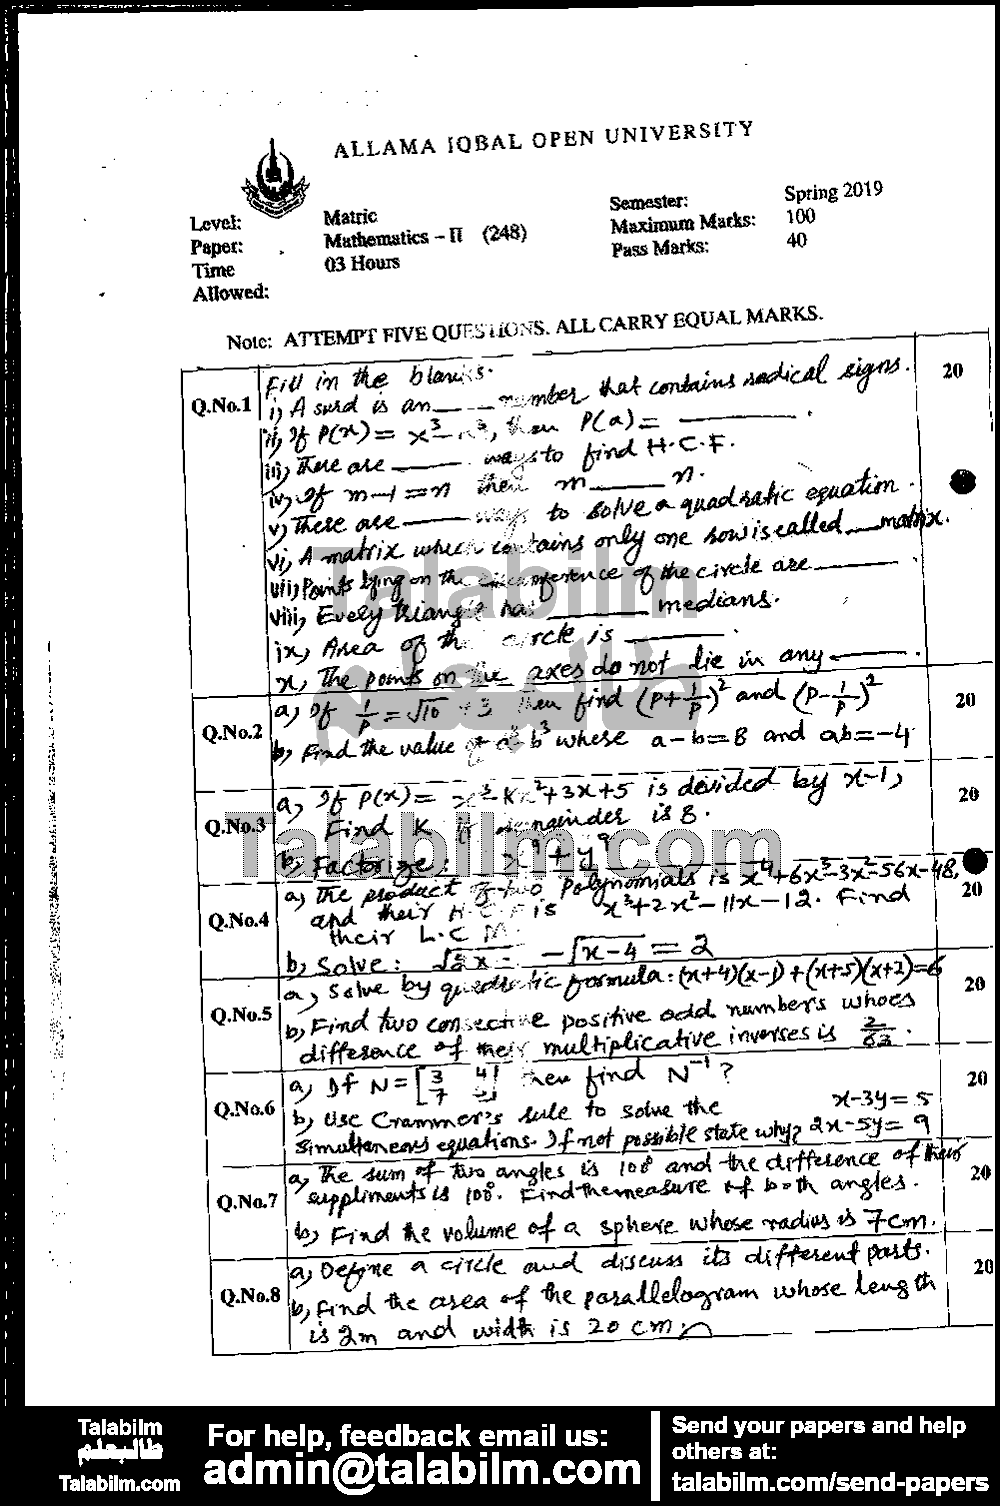 ALLAMA IQBAL OPEN UNIVERSITY
Level: Matric Semester: Spring 2019
Paper: Mathematics – II (248) Maximum Marks: 100
Time 03 Hours Pass Marks: 40
Allowed:
Note: ATTEMPT FIVE QUESTIONS. ALL CARRY EQUAL MARKS.
Q.No.1 Fill in the blanks. 20
i) A surd is an ____ number that contains radical signs.
ii) If P(x) = x³ - x³, then P(a) = ____.
iii) There are ____ ways to find H.C.F.
iv) If m-1=n then m ____ n.
v) There are ____ ways to solve a quadratic equation.
vi) A matrix which contains only one row is called ___ matrix.
vii) Points lying on the circumference of the circle are ____.
viii) Every triangle has ____ medians.
ix) Area of the circle is ____.
x) The points on the axes do not lie in any ____.
Q.No.2 a) If 1/p = √10 + 3 then find (p+1/p)² and (p-1/p)² 20
b) Find the value of a³-b³ where a-b=8 and ab=-4
Q.No.3 a) If P(x) = x³-Kx²+3x+5 is devided by x-1, 20
Find K if remainder is 8.
b) Factorize: x⁹+y⁹
Q.No.4 a) The product of two polynomials is x⁴+6x³-3x²-56x-48, 20
and their H.C.F is x³+2x²-11x-12. Find
their L.C.M.
b) Solve: -√x-4 = 2
Q.No.5 a) Solve by quadratic formula: (x+4)(x-1)+(x+5)(x+2)=6 20
b) Find two consective positive odd numbers whoes
difference of their multiplicative inverses is 2/63.
Q.No.6 a) If N = [3 4 7] then find N⁻¹? 20
b) Use Crammer's rule to solve the x-3y=5
simultaneous equations. If not possible state why? 2x-5y=9
Q.No.7 a) The sum of two angles is 100° and the difference of their 20
suppliments is 100°. Find the measure of both angles.
b) Find the volume of a sphere whose radius is 7cm.
Q.No.8 a) Define a circle and discuss its different parts. 20
b) Find the area of the parallelogram whose length
is 2m and width is 20 cm.
Talabilm
طالبعلم
Talabilm.com
Talabilm
طالبعلم
Talabilm.com
For help, feedback email us:
admin@talabilm.com
Send your papers and help
others at:
talabilm.com/send-papers